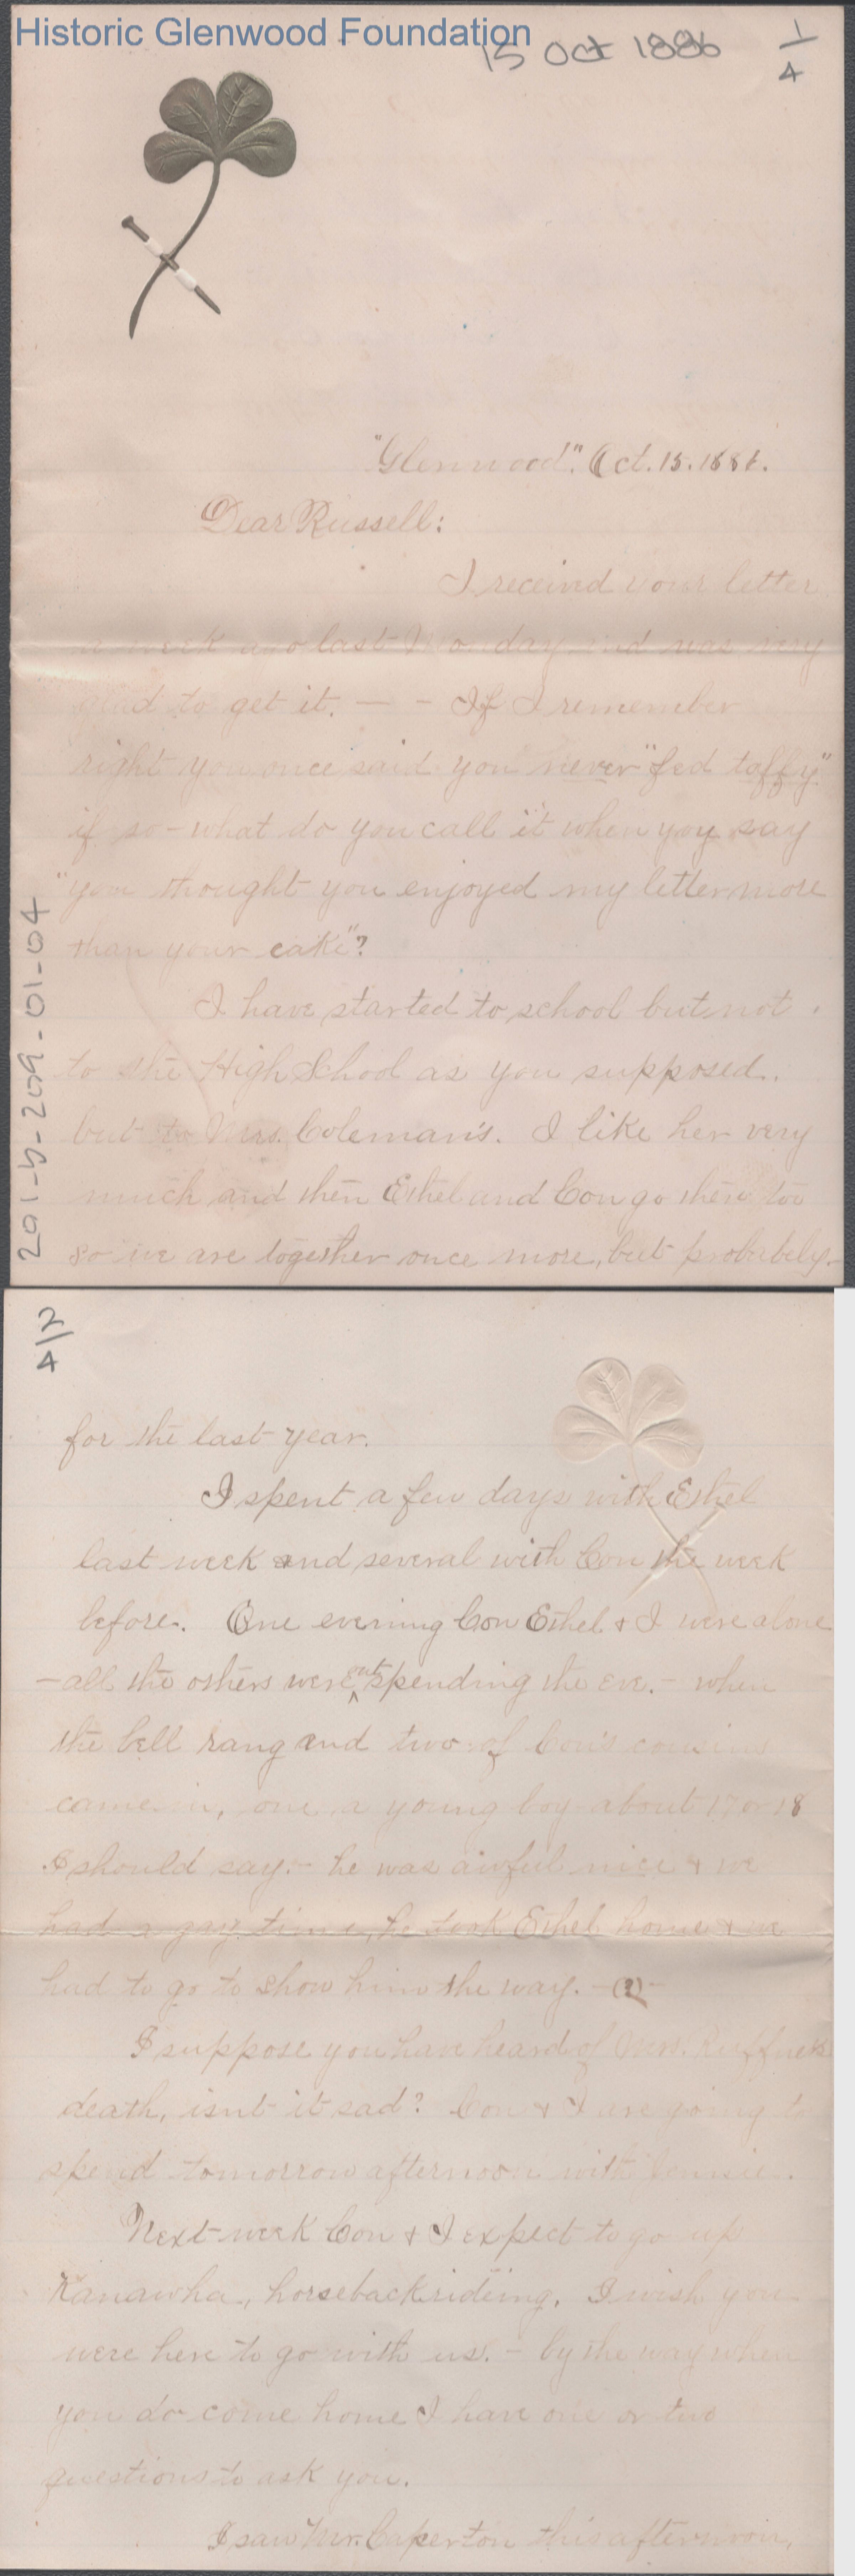 Historic Glenwood Foundation
15 Oct 1886
1/4
"Glenwood". Oct. 15. 1886.
Dear Russell:
I receivd your letter
a week ago last Monday and was very
glad to get it. — - If I remember
right you once said you never "fed taffy"
if so - what do you call it when you say
"you thought you enjoyed my letter more
than your cake"?
I have started to school but not
to the High School as you supposed.
but to Mrs. Coleman's. I like her very
much and then Ethel and Con go there too
so we are together once more, but probabely
291-5-209-01-04
2/4
for the last year.
I spent a few days with Ethel
last week and several with Con the week
before. One evening Con Ethel & I were alone
- all the others were out spending the eve. - when
the bell rang and two of Con's cousins
came in, one a young boy about 17 or 18
I should say. - he was awful nice & we
had a gay time, he took Ethel home & we
had to go to show him the way. - (?) -
I suppose you have heard of Mrs. Ruffner's
death, isnt it sad? Con & I are going to
spend tomorrow afternoon with
Next week Con & I expect to go up
Kanawha, horseback rideing. I wish you
were here to go with us. - by the way when
you do come home I have one or two
questions to ask you.
I saw Mr. Caperton this afternoon,